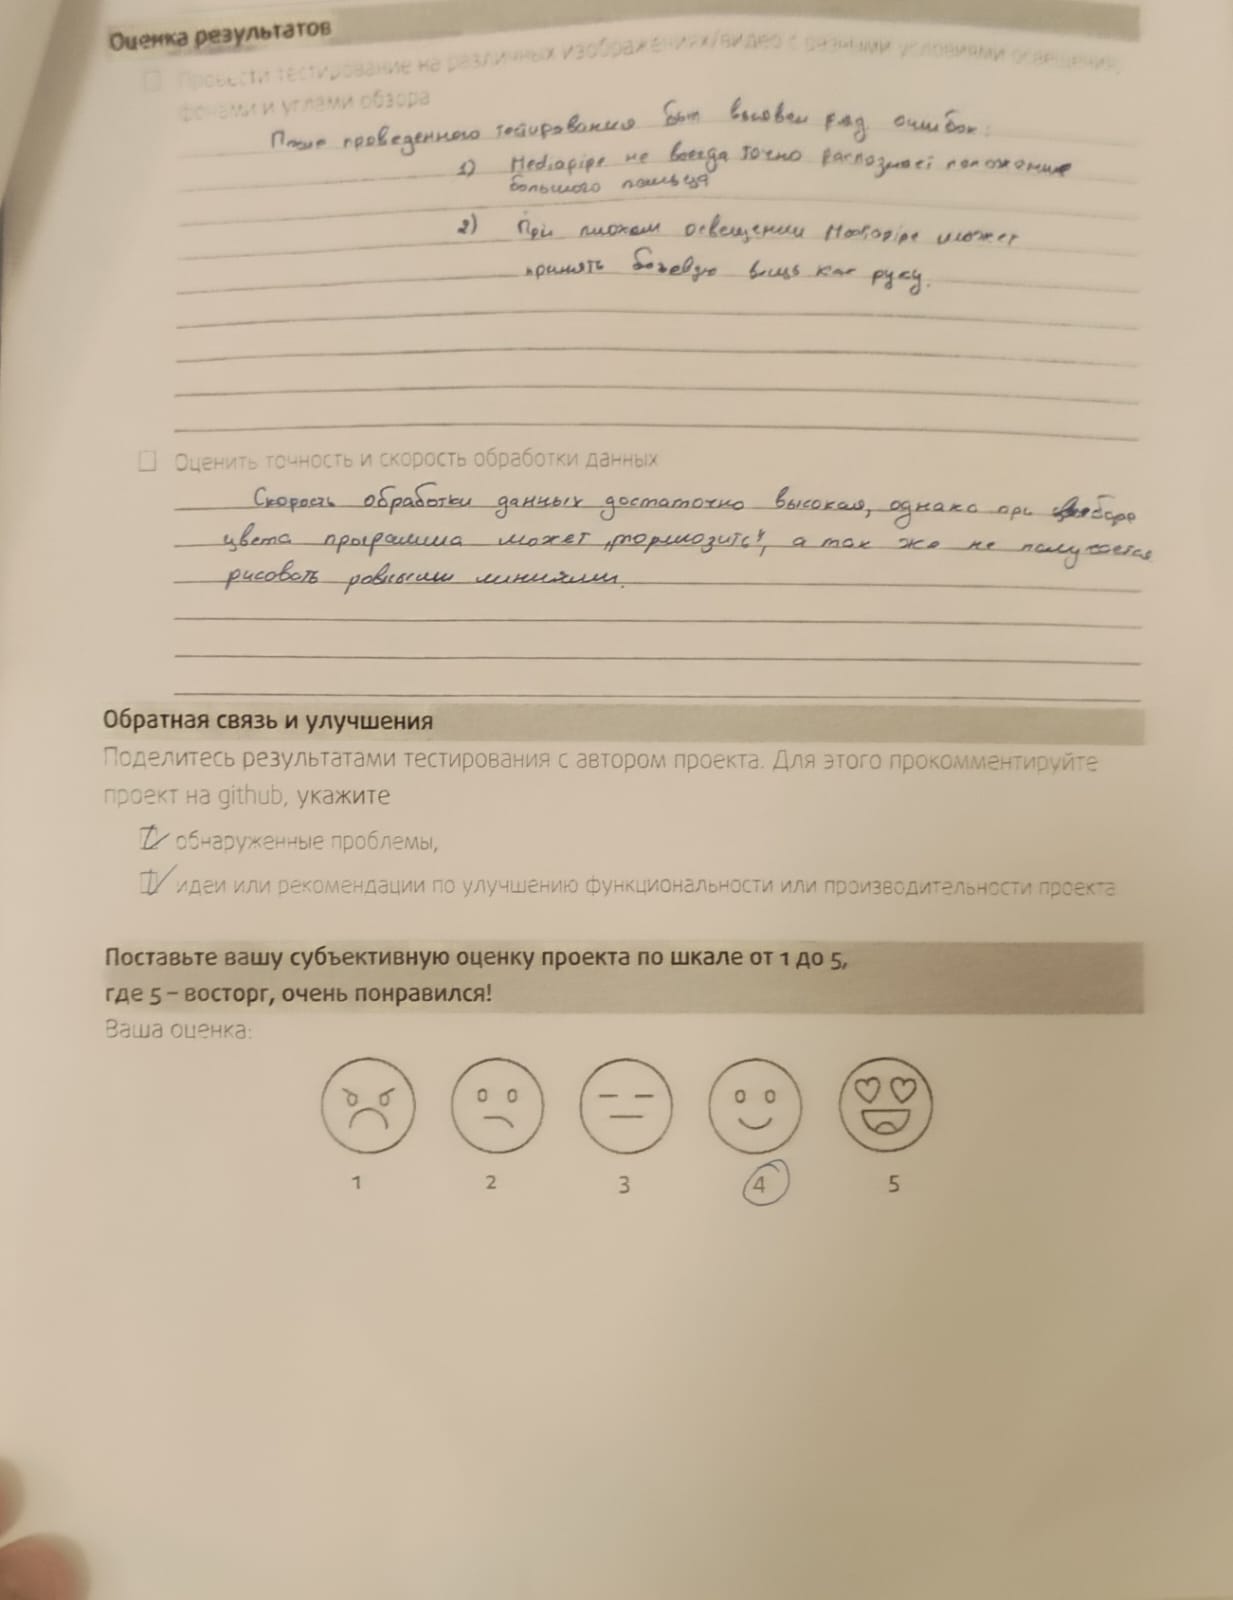 Оценка результатов
Провести тестирование на различных изображениях/видео с разными условиями освещения,
фонами и углами обзора
После проведенного тестирования был выявлен ряд ошибок:
1) Mediapipe не всегда точно распознает положение
большого пальца
2) При плохом освещении Mediapipe может
принять бежевую вещь как руку.
Оценить точность и скорость обработки данных
Скорость обработки данных достаточно высокая, однако при выборе
цвета программа может „тормозить“, а так же не получается
рисовать ровными линиями.
Обратная связь и улучшения
Поделитесь результатами тестирования с автором проекта. Для этого прокомментируйте
проект на github, укажите
обнаруженные проблемы,
идеи или рекомендации по улучшению функциональности или производительности проекта
Поставьте вашу субъективную оценку проекта по шкале от 1 до 5,
где 5 – восторг, очень понравился!
Ваша оценка:
1 2 3 4 5